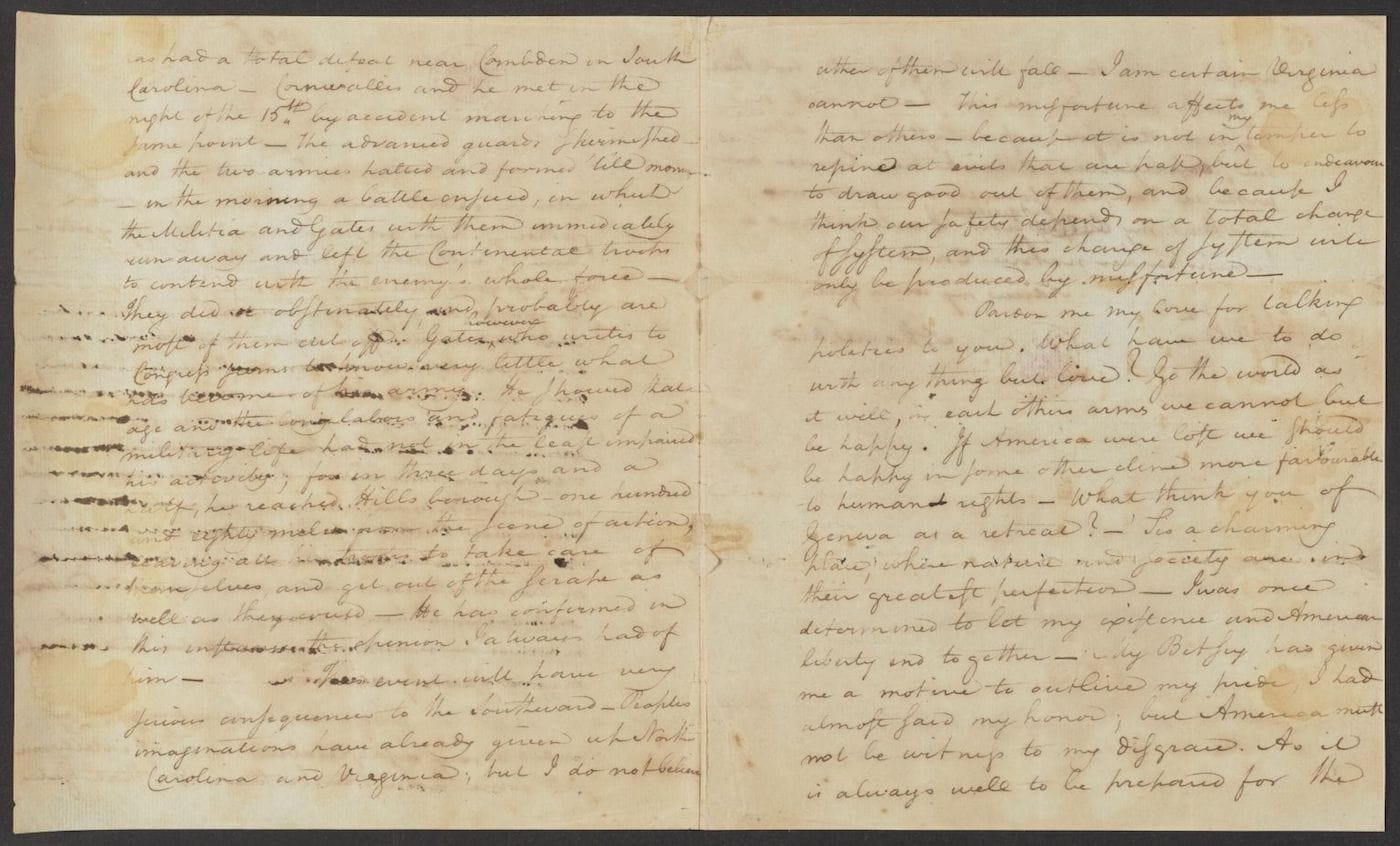 has had a total defeat near Cambden in South
Carolina — Cornwallis and he met in the
night of the 15th by accident marching to the
same point — The advanced guards skirmished
and the two armies halted and formed till morn
— in the morning a battle ensued, in which
the Militia and Gates with them immediately
run away and left the Continental troops
to contend with the enemy's whole force —
They did it obstinately, and probably are
most of them cut off. Gates, however, who writes to
Congress seems to know very little what
has become of his army. He showed that
age and the long labors and fatigues of a
military life had not in the least impaired
his activity; for in three days and a
half, he reached Hills borough, one hundred
and eighty miles from the scene of action,
leaving all his troops to take care of
themselves and get out of the scrape as
well as they could — He has confirmed in
this instance the opinion I always had of
him —
This event will have very
serious consequences to the Southward — Peoples
imaginations have already given up North
Carolina and Virginia; but I do not believe
either of them will fall — I am certain Virginia
cannot — This misfortune affects me less
than others — because it is not in my temper to
repine at evils that are past, but to endeavour
to draw good out of them, and because I
think our safety depends on a total change
of system, and this change of system will
only be produced by misfortune —
Pardon me my love for talking
politics to you. What have we to do
with any thing but love? Go the world as
it will, in each others arms we cannot but
be happy. If America were lost we should
be happy in some other clime more favourable
to human rights — What think you of
Geneva as a retreat? — 'Tis a charming
place; where nature and society are in
their greatest perfection — I was once
determined to let my existence and American
liberty end together — My Betsey has given
me a motive to outlive my pride, I had
almost said my honor; but America must
not be witness to my disgrace. As it
is always well to be prepared for the